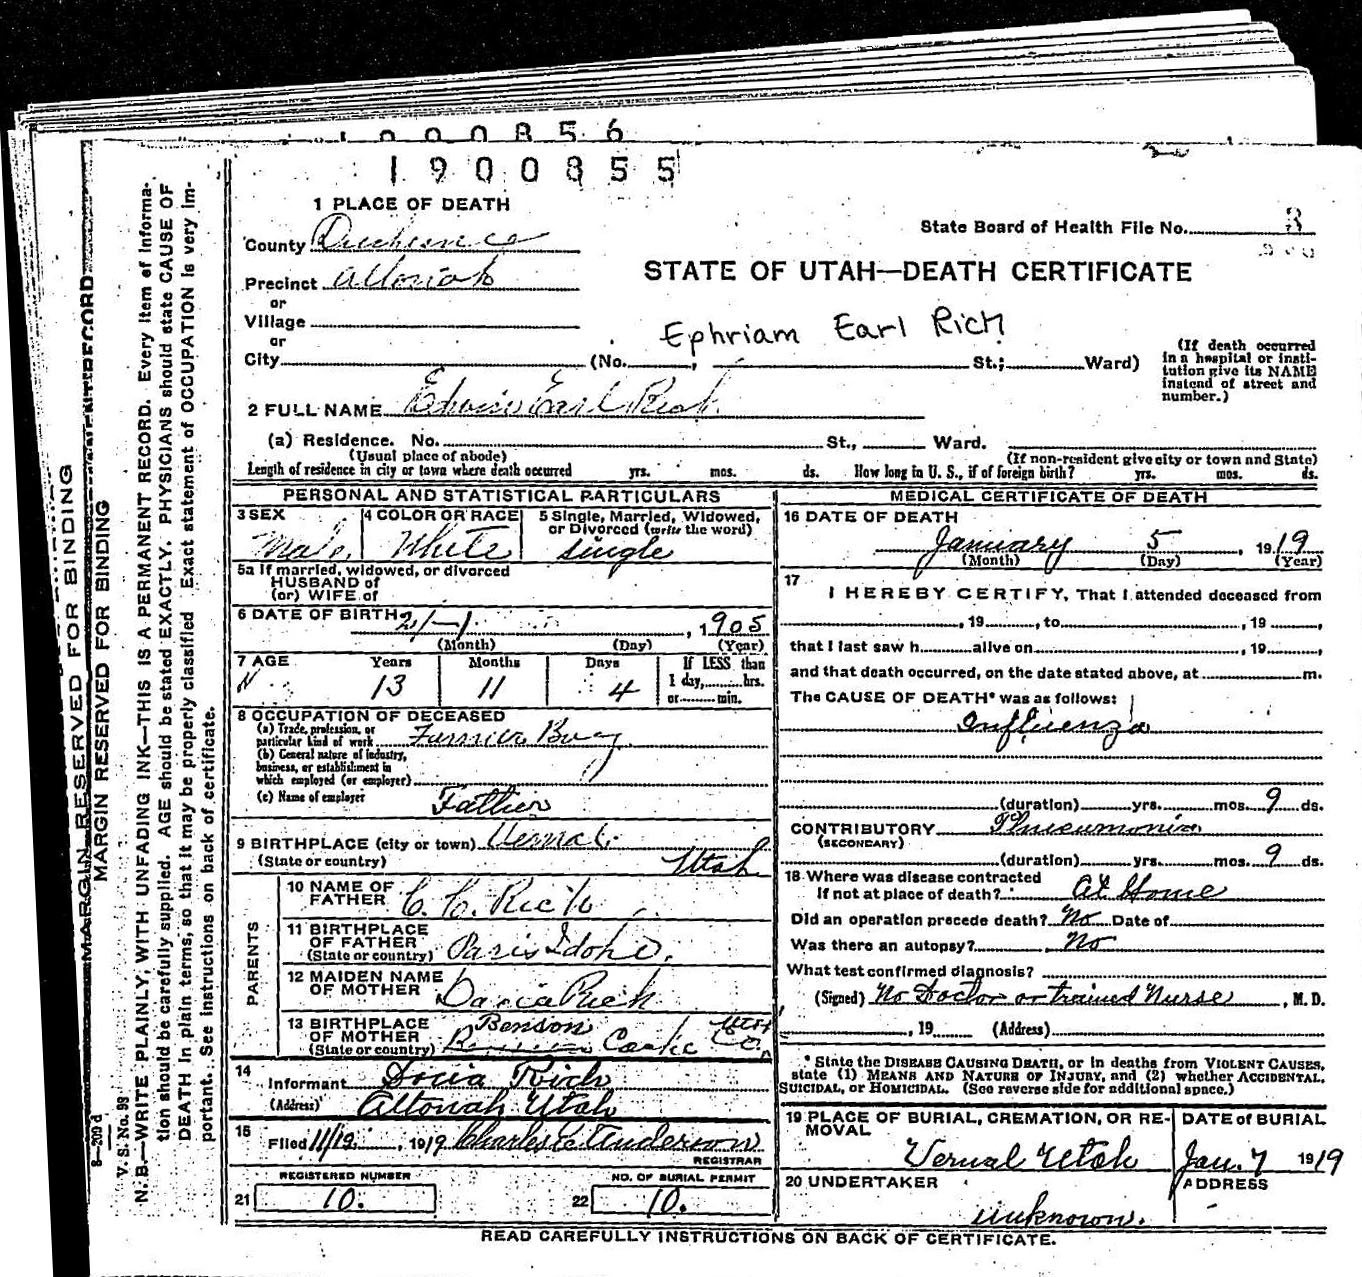 1900856
1900855
1 PLACE OF DEATH
State Board of Health File No. 3
County Duchesne
STATE OF UTAH—DEATH CERTIFICATE
Precinct Altonah
or
Village
or
Ephriam Earl Rich
City (No. , St.; Ward)
(If death occurred
in a hospital or insti-
tution give its NAME
instead of street and
number.)
2 FULL NAME Edwin Earl Rich
(a) Residence. No. St., Ward.
(Usual place of abode) (If non-resident give city or town and State)
Length of residence in city or town where death occurred yrs. mos. ds. How long in U. S., if of foreign birth? yrs. mos. ds.
PERSONAL AND STATISTICAL PARTICULARS
3 SEX 4 COLOR OR RACE 5 Single, Married, Widowed,
or Divorced (write the word)
Male White single
5a If married, widowed, or divorced
HUSBAND of
(or) WIFE of
6 DATE OF BIRTH 2/—1 , 1905
(Month) (Day) (Year)
7 AGE Years Months Days If LESS than
1 day, hrs.
or min.
13 11 4
8 OCCUPATION OF DECEASED
(a) Trade, profession, or
particular kind of work Farmer Boy
(b) General nature of industry,
business, or establishment in
which employed (or employer)
(c) Name of employer Father
9 BIRTHPLACE (city or town) Vernal
(State or country) Utah
PARENTS
10 NAME OF
FATHER C. C. Rich
11 BIRTHPLACE
OF FATHER
(State or country) Paris Idoho.
12 MAIDEN NAME
OF MOTHER Rich
13 BIRTHPLACE
OF MOTHER
(State or country) Benson Cache Co. Utah
14
Informant Rich
(Address) Altonah Utah
15
Filed 11/12 1919 Charles E Anderson
REGISTRAR
REGISTERED NUMBER NO. OF BURIAL PERMIT
21 10. 22 10.
MEDICAL CERTIFICATE OF DEATH
16 DATE OF DEATH
January 5 , 1919
(Month) (Day) (Year)
17
I HEREBY CERTIFY, That I attended deceased from
, 19 , to , 19 ,
that I last saw h alive on , 19 ,
and that death occurred, on the date stated above, at m.
The CAUSE OF DEATH* was as follows:
Influenza
(duration) yrs. mos. 9 ds.
CONTRIBUTORY Pneumonia
(SECONDARY)
(duration) yrs. mos. 9 ds.
18 Where was disease contracted
If not at place of death? At Home
Did an operation precede death? No Date of
Was there an autopsy? No
What test confirmed diagnosis?
(Signed) No Doctor or trained Nurse , M. D.
, 19 (Address)
* State the DISEASE CAUSING DEATH, or in deaths from VIOLENT CAUSES,
state (1) MEANS AND NATURE OF INJURY, and (2) whether ACCIDENTAL,
SUICIDAL, or HOMICIDAL. (See reverse side for additional space.)
19 PLACE OF BURIAL, CREMATION, OR RE-
MOVAL
Vernal Utah
DATE of BURIAL
Jan. 7 1919
20 UNDERTAKER
unknown.
ADDRESS
READ CAREFULLY INSTRUCTIONS ON BACK OF CERTIFICATE.
MARGIN RESERVED FOR BINDING
MARGIN RESERVED FOR BINDING
S—209 d
V. S. No. 99
N. B.—WRITE PLAINLY, WITH UNFADING INK—THIS IS A PERMANENT RECORD. Every item of informa-
tion should be carefully supplied. AGE should be stated EXACTLY. PHYSICIANS should state CAUSE OF
DEATH in plain terms, so that it may be properly classified Exact statement of OCCUPATION is very im-
portant. See instructions on back of certificate.